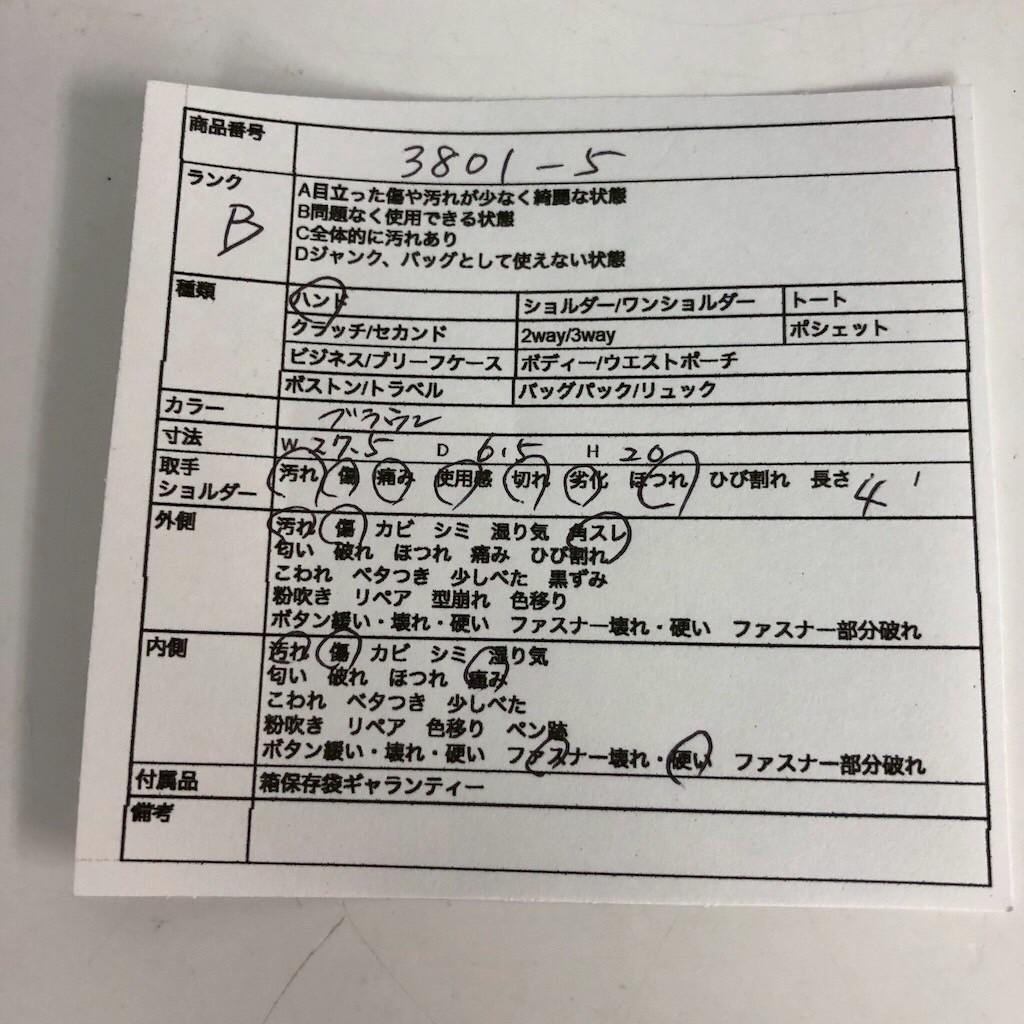 商品番号 3801-5
ランク B
A目立った傷や汚れが少なく綺麗な状態
B問題なく使用できる状態
C全体的に汚れあり
Dジャンク、バッグとして使えない状態
種類 ハンド ショルダー/ワンショルダー トート
クラッチ/セカンド 2way/3way ポシェット
ビジネス/ブリーフケース ボディー/ウエストポーチ
ボストン/トラベル バッグパック/リュック
カラー ブラウン
寸法 W 27.5 D 6.5 H 20
取手 汚れ 傷 痛み 使用感 切れ 劣化 ほつれ ひび割れ 長さ 4
ショルダー
外側 汚れ 傷 カビ シミ 湿り気 角スレ
匂い 破れ ほつれ 痛み ひび割れ
こわれ ベタつき 少しべた 黒ずみ
粉吹き リペア 型崩れ 色移り
ボタン緩い・壊れ・硬い ファスナー壊れ・硬い ファスナー部分破れ
内側 汚れ 傷 カビ シミ 湿り気
匂い 破れ ほつれ 痛み
こわれ ベタつき 少しべた
粉吹き リペア 色移り ペン跡
ボタン緩い・壊れ・硬い ファスナー壊れ・硬い ファスナー部分破れ
付属品 箱保存袋ギャランティー
備考